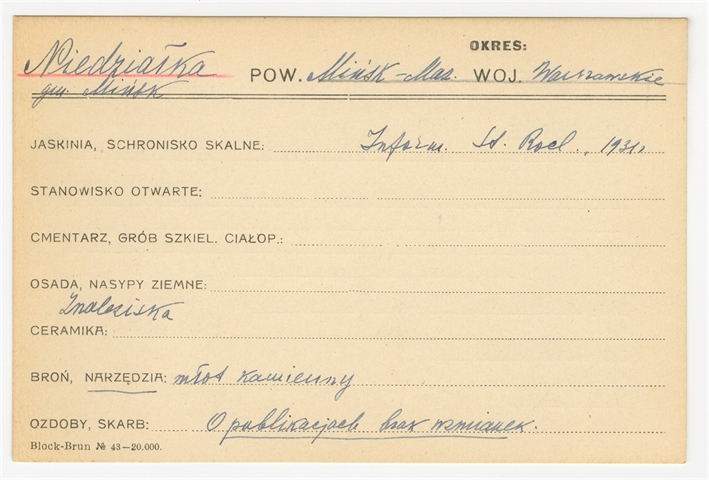 OKRES:
Niedziałka POW. Mińsk-Maz. WOJ. Warszawskie
gm. Mińsk
JASKINIA, SCHRONISKO SKALNE: Inform. St. 1931.
STANOWISKO OTWARTE:
CMENTARZ, GRÓB SZKIEL. CIAŁOP.:
OSADA, NASYPY ZIEMNE:
Znalesiska
CERAMIKA:
BROŃ, NARZĘDZIA: młot kamienny
OZDOBY, SKARB: O publikacjach brak wzmianek.
Block-Brun № 43—20.000.